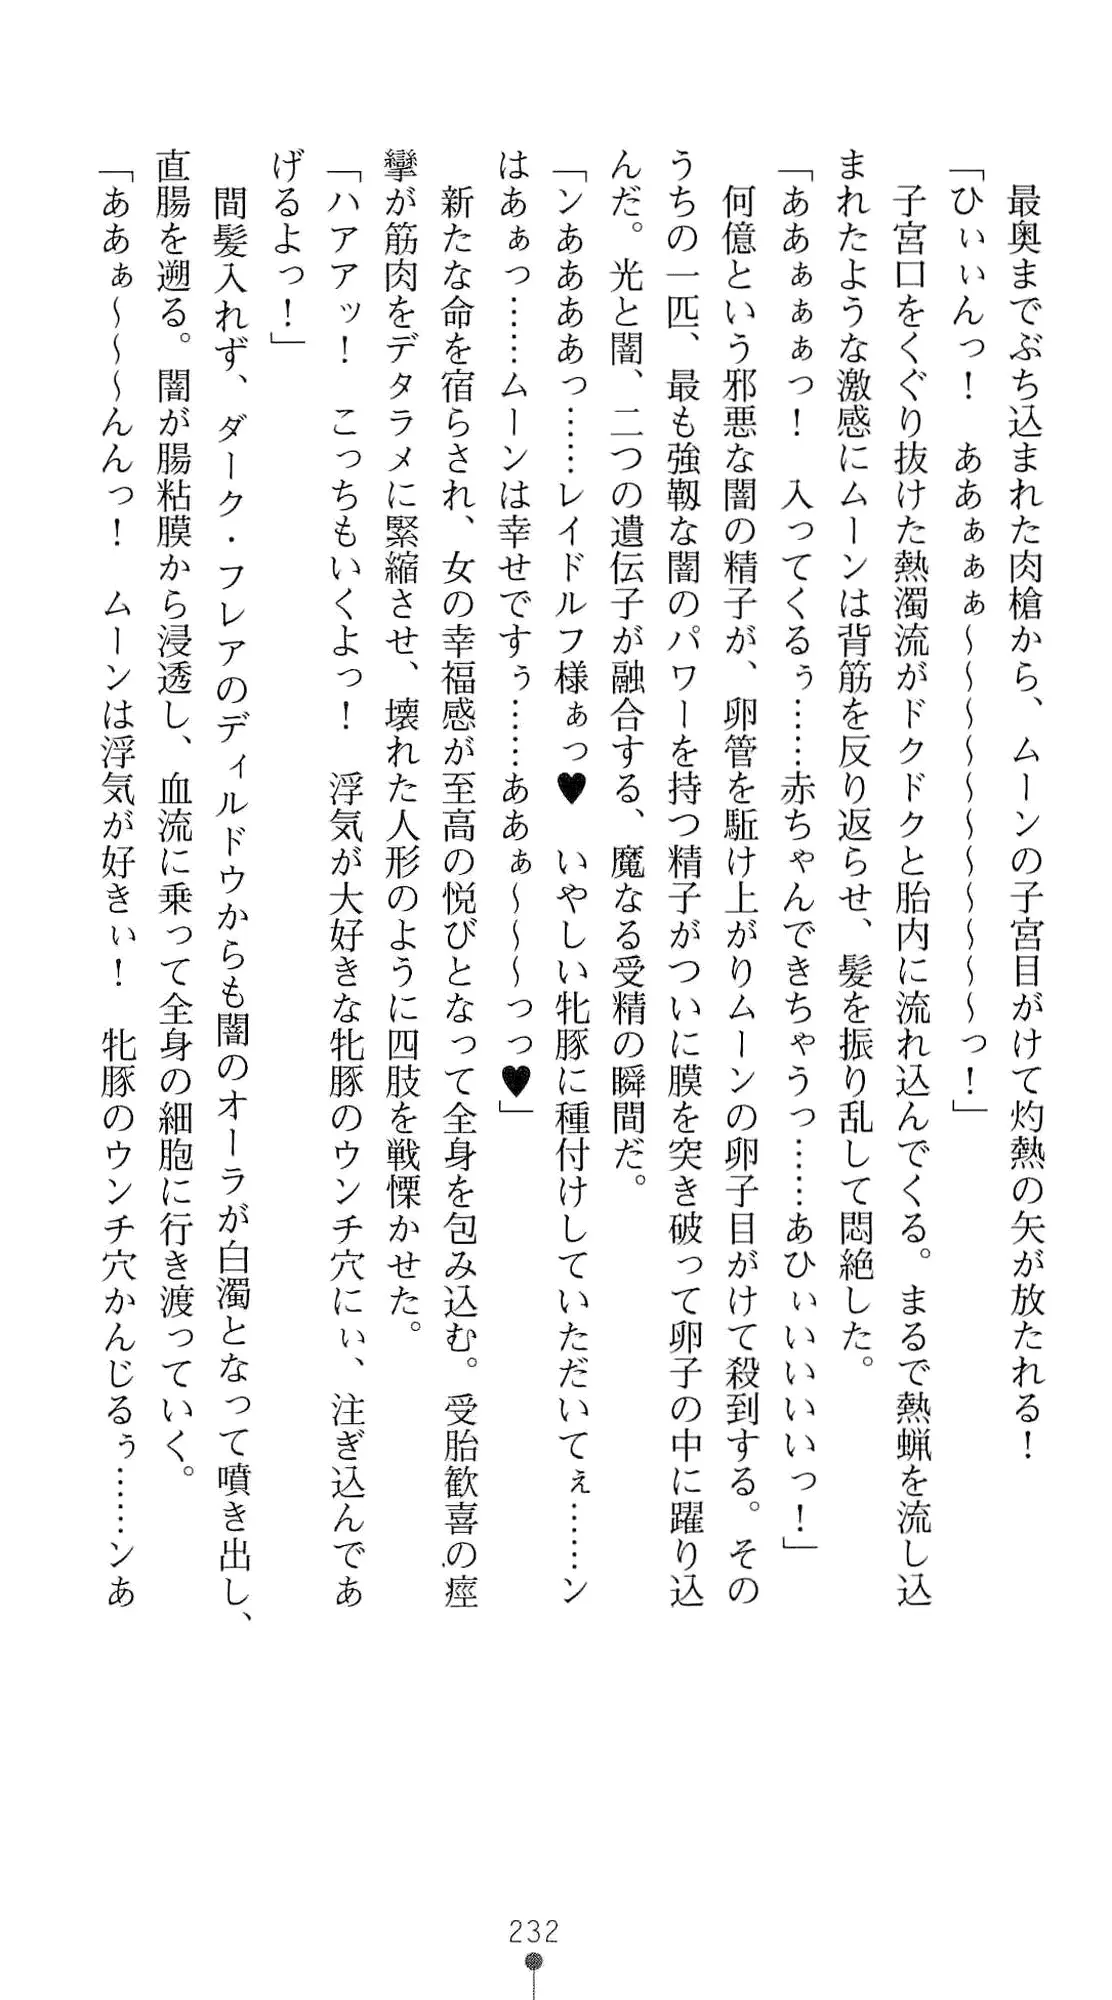 最奥までぶち込まれた肉槍から、ムーンの子宮目がけて灼熱の矢が放たれる！
「ひぃぃんっ！　ああぁぁぁ～～～～～～～～～～～っ！」
子宮口をくぐり抜けた熱濁流がドクドクと胎内に流れ込んでくる。まるで熱蝋を流し込
まれたような激感にムーンは背筋を反り返らせ、髪を振り乱して悶絶した。
「ああぁぁぁっ！　入ってくるぅ……赤ちゃんできちゃうっ……あひぃいいいいっ！」
何億という邪悪な闇の精子が、卵管を駈け上がりムーンの卵子目がけて殺到する。その
うちの一匹、最も強靱な闇のパワーを持つ精子がついに膜を突き破って卵子の中に躍り込
んだ。光と闇、二つの遺伝子が融合する、魔なる受精の瞬間だ。
「ンああああっ……レイドルフ様ぁっ♥　いやしい牝豚に種付けしていただいてぇ……ン
はあぁっ……ムーンは幸せですぅ……ああぁ～～～っっ♥」
新たな命を宿らされ、女の幸福感が至高の悦びとなって全身を包み込む。受胎歓喜の痙
攣が筋肉をデタラメに緊縮させ、壊れた人形のように四肢を戦慄かせた。
「ハアアッ！　こっちもいくよっ！　浮気が大好きな牝豚のウンチ穴にぃ、注ぎ込んであ
げるよっ！」
間髪入れず、ダーク・フレアのディルドウからも闇のオーラが白濁となって噴き出し、
直腸を遡る。闇が腸粘膜から浸透し、血流に乗って全身の細胞に行き渡っていく。
「ああぁ～～～んんっ！　ムーンは浮気が好きぃ！　牝豚のウンチ穴かんじるぅ……ンあ
232